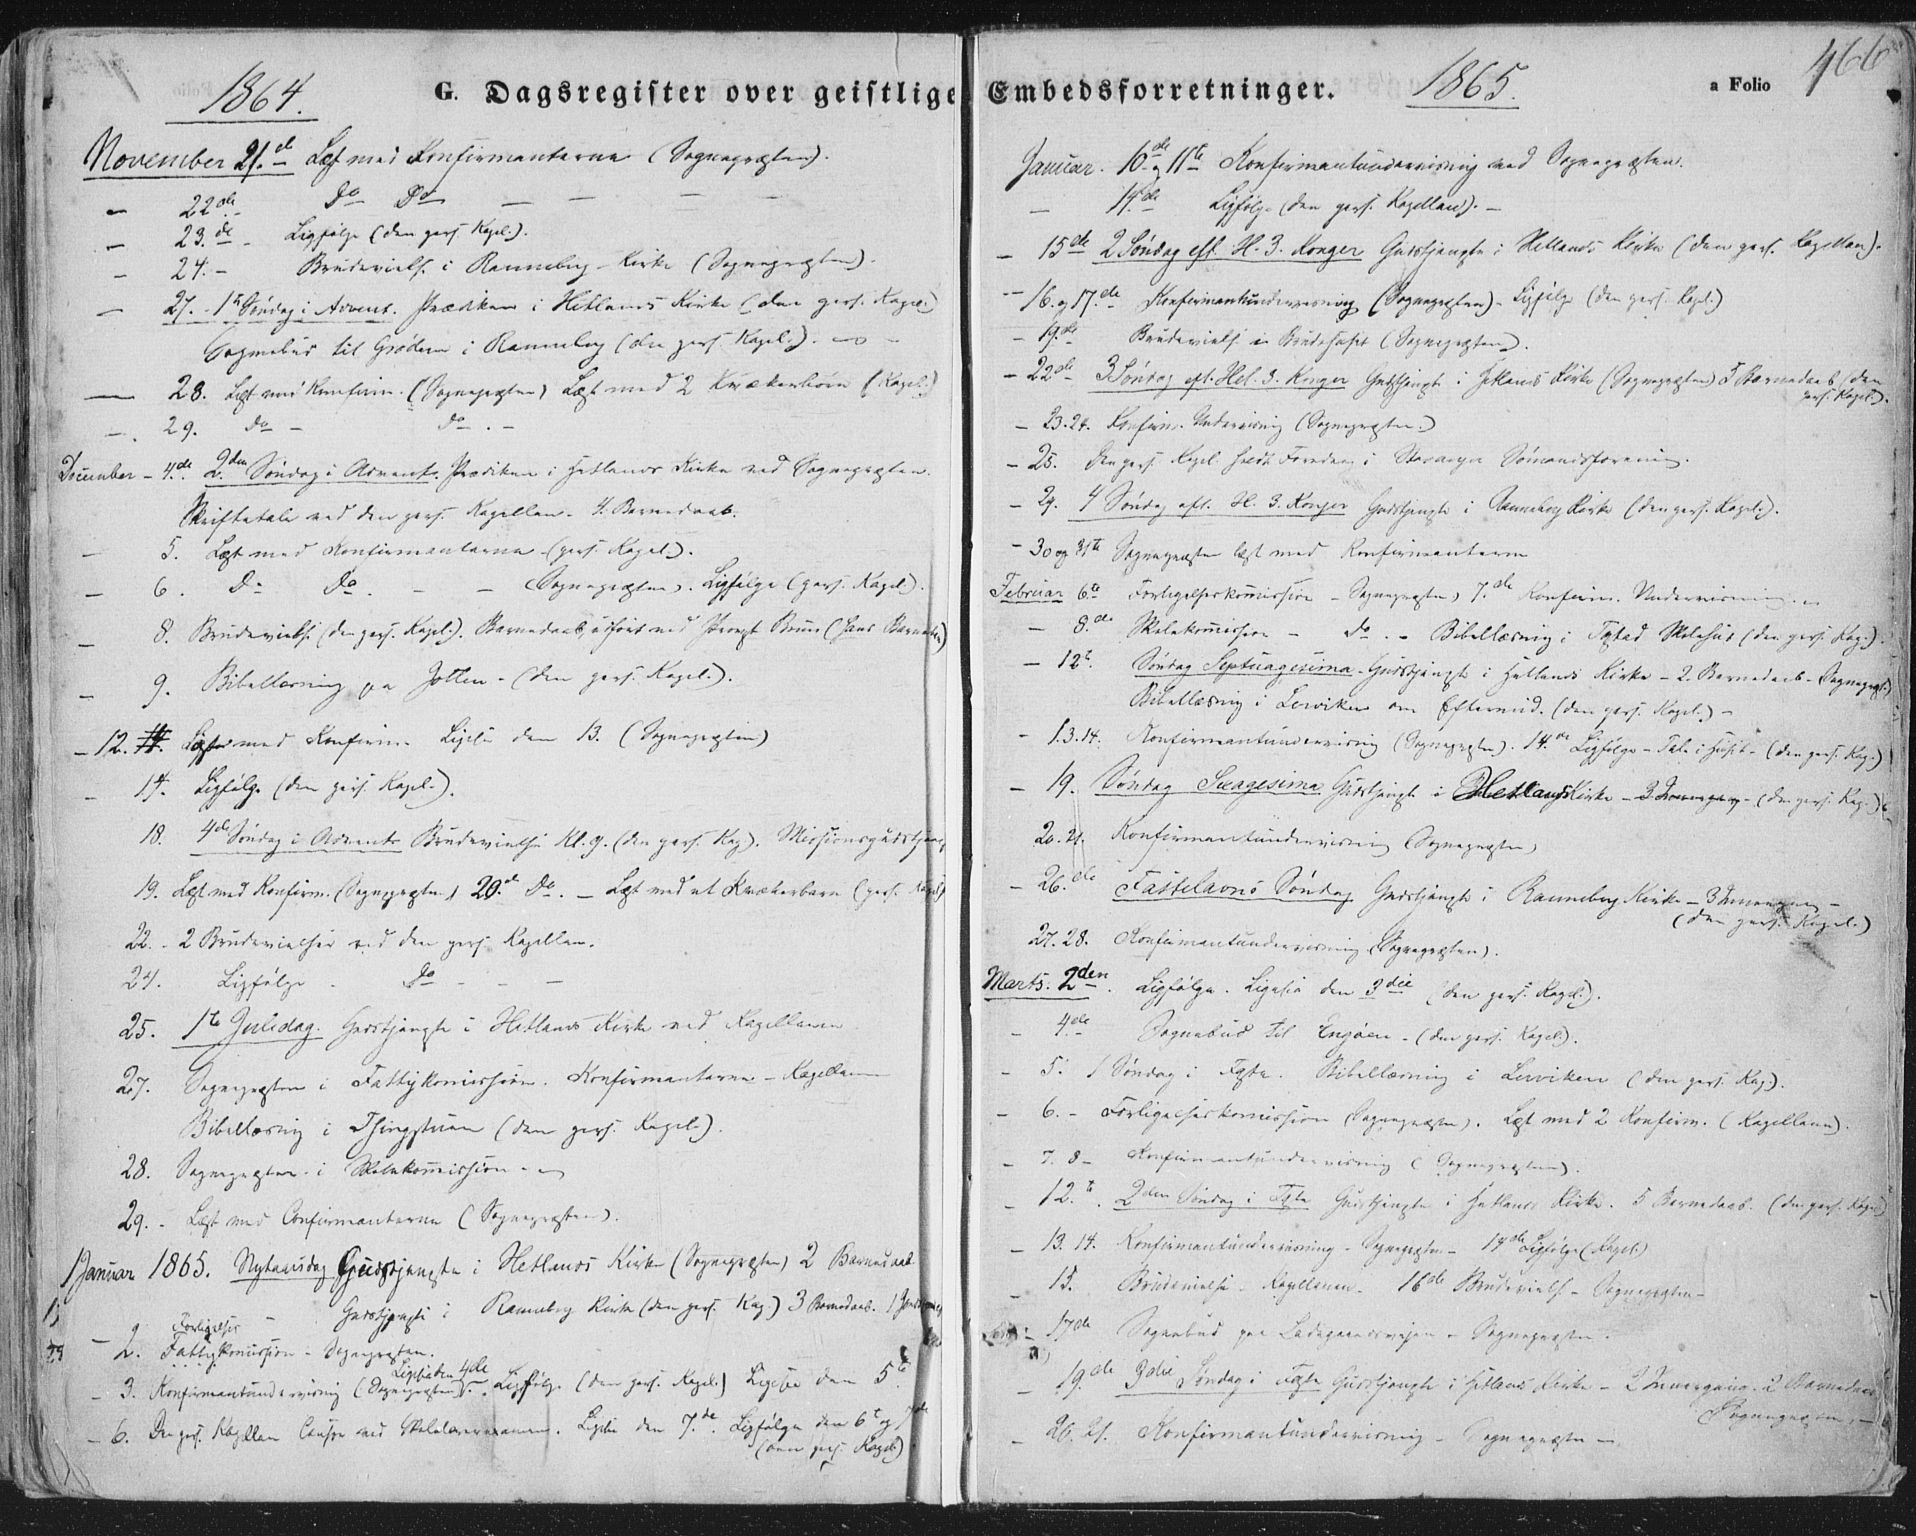 1864.
G. Dagsregister over geistlige
November 21.de Læst med Konfirmanterne (Sognepræsten).
– 22de – Do Do – – – –
– 23.de – Ligfølge (den pers. Kapel.).
– 24. – Brudevielse i Ranneberg Kirke (Sognepræsten).
– 27. – 1st Søndag i Advent. Prædiken i Hetlands Kirke (den pers. Kapel.)
Sognebud til Grødem i Ranneberg (den pers. Kapel.).
– 28. Læst med Konfirm. (Sognepræsten) Læst med 2 Kvækerbørn (Kapel.)
– 29. Do – Do . –
December – 4.de 2.den Søndag i Advent. Prædiken i Hetlands Kirke ved Sognepræsten.
Skriftetale ved den pers. Kapellan. 4 Barnedaab.
– 5. Læst med Konfirmanterne (pers. Kapel.).
– 6. Do Do. – – (Sognepræsten). Ligfølge (pers. Kapel.).
– 8. Brudevielse (den pers. Kapel.). Barnedaab udført ved Provst Bruun (hans Barnebarn)
– 9. Bibellæsning paa Jotten – (den pers. Kapel.).
– 12. Læst med Konfirm. Liglie den 13. (Sognepræsten)
– 14. Ligfølge (den pers. Kapel.).
18. 4de Søndag i Advent Brudevielse Kl. 9. (den pers. Kap). Missionsgudstjeneste
19. Læst med Konfirm. (Sognepræsten) 20.de Do. – Læst med et Kvækerbarn (pers. Kapel)
22. – 2 Brudevielser ved den pers. Kapellan.
24. Ligfølge – Do – – –
25. 1te Juledag. Gudstjeneste i Hetlands Kirke ved Kapellanen
27. Sognepræsten i Fattigkommission. Konfirmanterne – Kapellanen
Bibellæsning i Thingstuen (den pers. Kapel.).
28. Sognepræsten i Skolekommission
29. – Læst med Confirmanterne (Sognepræsten).
1 Januar 1865. Nytaarsdag Gudstjeneste i Hetlands Kirke (Sognepræsten) 2 Barnedaab
– Gudstjeneste i Ranneberg Kirke (den pers. Kap.) 3 Barnedaab.
Forligelses
– 2. Fattigkommission – Sognepræsten.
– 3. Konfirmantundervisning (Sognepræsten). Ligfølge (den pers. Kapel.) Liglie den 5te
– 6. Den pers. Kapellan Censor ved Skolelærerexamen. Liglie den 7.de. Ligfølge den 6te og 7de
(den pers. Kapel.)
Embedsforretninger. 1865.
a Folio 466
Januar. 10de og 11te Konfirmantundervisning ved Sognepræsten.
– 14.de Ligfølge (den pers. Kapellan). –
– 15de 2 Søndag eft. H. 3. Konger Gudstjeneste i Hetlands Kirke (den pers. Kapellan).
– 16. og 17.de Konfirmantundervisning (Sognepræsten) – Ligfølge (den pers. Kapel.)
– 19.de Brudevielse i Brudehuset (Sognepræsten).
– 22de 3 Søndag eft. Hel. 3. Konger Gudstjeneste i Hetlands Kirke (Sognepræsten) 5 Barnedaab (den
pers. Kapel.).
– 23.24. Konfirm. Undervisning (Sognepræsten.)
– 25. Den pers. Kapel. holdt Foredrag i Stavanger Sømandsforening.
– 29. 4 Søndag eft. H. 3. Konger Gudstjeneste i Ranneberg Kirke (den pers. Kapel.).
– 30 og 31te Sognepræsten læst med Konfirmanterne
Februar 6te Forligelseskommission – Sognepræsten, 7.de Konfirm. Undervisning.
– 8.de Skolekommission – Do . – Bibellæsning i Tastad Skolehus (den pers. Kap.).
– 12te. Søndag Septuagesima – Gudstjeneste i Hetlands Kirke – 2 Barnedaab – Sognepræst.)
Bibellæsning i Lerviken om Eftermid. (den pers. Kapel.) –
– 13.14. Konfirmantundervisning (Sognepræsten). 14.de Ligfølge – Tale i Huset – (den pers. Kap.)
– 19. Søndag Sexagesima Gudstjeneste i Hetlands Kirke – 3 – (den pers. Kap.)
20. 21. Konfirmantundervisning (Sognepræsten)
– 26.de Fastelavns Søndag Gudstjeneste i Ranneberg Kirke – 3 –
(den pers. Kapel.)
27. 28. Konfirmantundervisning (Sognepræsten).
Marts. 2den. Ligfølge. Liglie den 3die (den pers. Kapel.).
– 4.de Sognebud til Engøen – (den pers. Kapel.).
– 5. 1 Søndag i Faste. Bibellæsning i Lerviken (den pers. Kap).
– 6. – Forligelseskommission (Sognepræsten). Læst med 2 Konfirm. (Kapellanen).
– 7. 8 – Konfirmantundervisning (Sognepræsten).
– 12.te. 2den Søndag i Faste Gudstjeneste i Hetlands Kirke. 5 Barnedaab. (den pers. Kapel)
– 13. 14. Konfirmantundervisning – Sognepræsten – 14de Ligfølge (Kapel.)
– 15. Brudevielse – Kapellanen. 16de Brudevielse – Sognepræsten –
– 17de Sognebud paa Ladegaardsveien – Sognepræsten.
– 19.de 3die Søndag i Faste Gudstjeneste i Hetlands Kirke – 2 2 Barnedaab
Sognepræsten –
– 20. 21. Konfirmantundervisning – Sognepræsten –